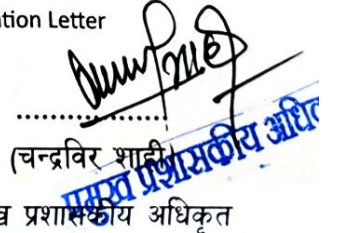 tion Letter
...................
(चन्द्रविर शाही)
प्रमुख प्रशासकीय अधि
ख प्रशासकीय अधिकृत